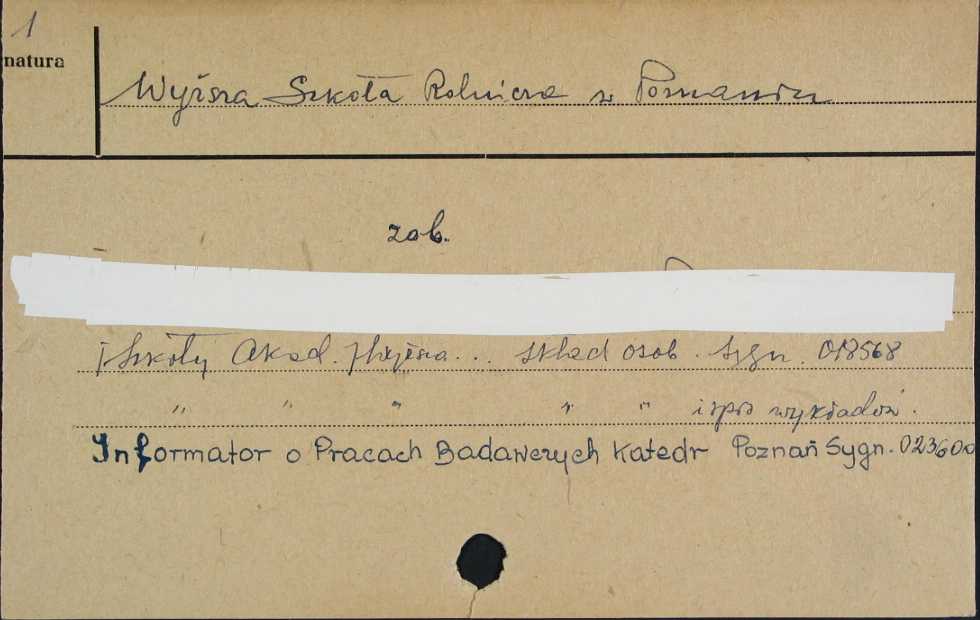 1
natura
Wyższa Szkoła Rolnicza w Poznaniu
zob.
Szkoły Akad. Wyższa... skład osob. Sygn. 018568
" " " " " i spis wykładów.
Informator o Pracach Badawczych Katedr Poznań Sygn. 023600